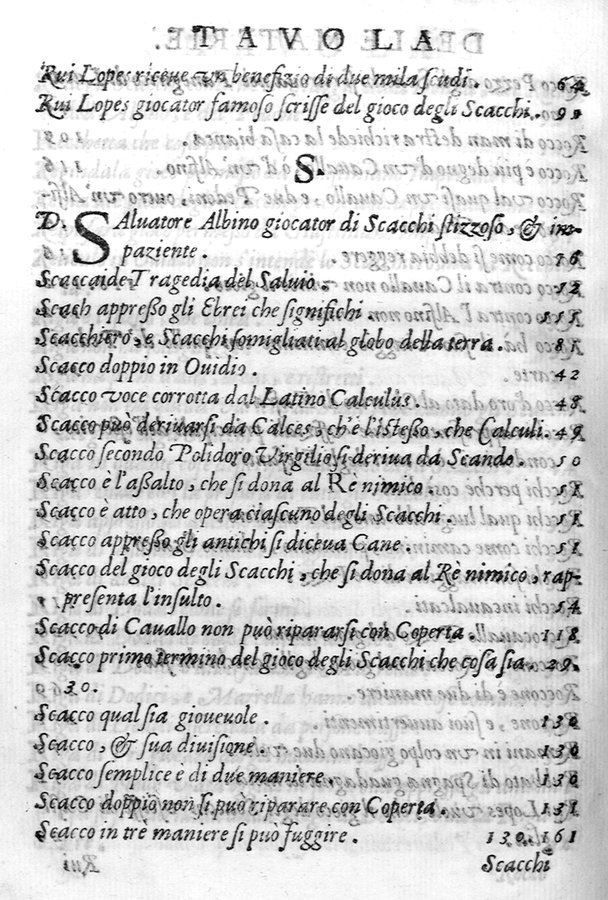 TAVOLA
Rui Lopes riceue vn benefizio di due mila scudi. 64
Rui Lopes giocator famoso scrisse del gioco degli Scacchi. 91
S.
D. SAluatore Albino giocator di Scacchi stizzoso, & im-
paziente. 16
Scaccaide Tragedia del Saluio. 12
Scach appreßo gli Ebrei che significhi. 115
Scacchiero, e Scacchi somigliati al globo della terra. 81
Scacco doppio in Ouidio. 42
Scacco voce corrotta dal Latino Calculus. 48
Scacco può deriuarsi da Calces, ch'è l'isteßo, che Calculi. 49
Scacco secondo Polidoro Virgilio si deriua da Scando. 50
Scacco è l'aßalto, che si dona al Re nimico. 51
Scacco è atto, che opera ciascuno degli Scacchi. 51
Scacco appreßo gli antichi si diceua Cane. 51
Scacco del gioco degli Scacchi, che si dona al Rè nimico, rap-
presenta l'insulto. 54
Scacco di Cauallo non può ripararsi con Coperta. 118
Scacco primo termino del gioco degli Scacchi che cosa sia. 29.
30.
Scacco qual sia gioueuole. 130
Scacco, & sua diuisione. 130
Scacco semplice e di due maniere. 130
Scacco doppio non si può riparare con Coperta. 131
Scacco in trè maniere si può fuggire. 130. 161
Scacchi